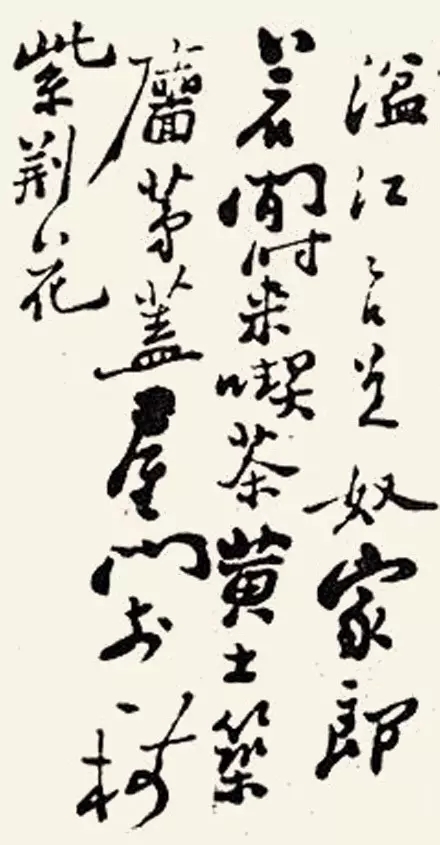 湓江々口是奴家郎
若閒時來喫茶黃土築
廧茅蓋屋門前一樹
紫荊花